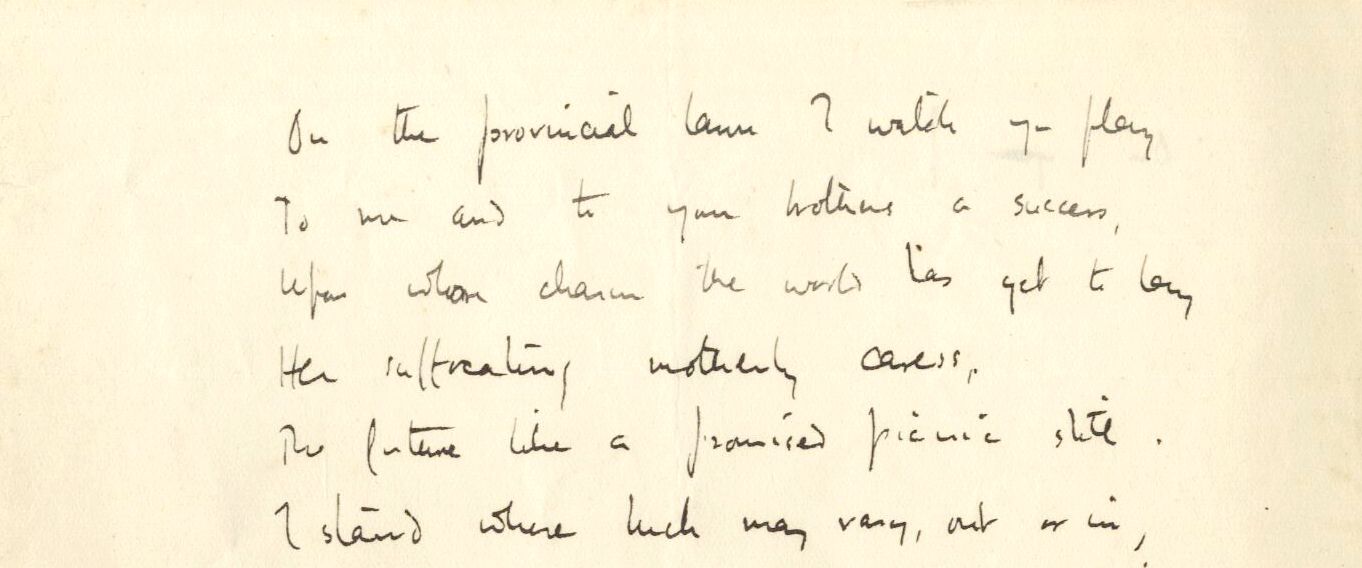 On the provincial lawn I watch you play
To me and to your brothers a success,
Upon whose charm the world has yet to lay
Her suffocating motherly caress,
The future like a promised picnic still.
I stand where luck may vary, out or in,